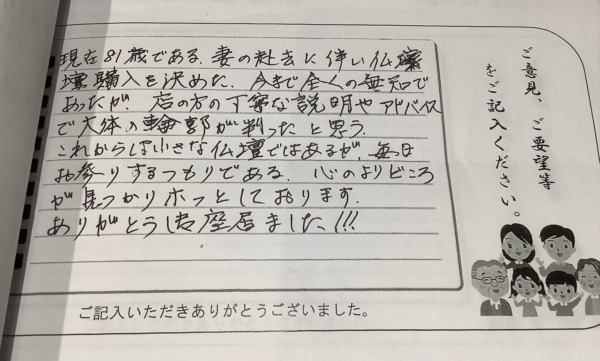 現在81歳である。妻の赴去に伴い仏壇
壇購入を決めた。今まで全くの無知で
あったが、店の方の丁寧な説明やアドバイス
で大体の輪郭が判ったと思う。
これからは小さな仏壇ではあるが、毎日
お参りするつもりである。心のよりどころ
が見つかりホッとしております。
ありがとうし座居ました!!!
ご意見、ご要望等
をご記入ください。
ご記入いただきありがとうございました。